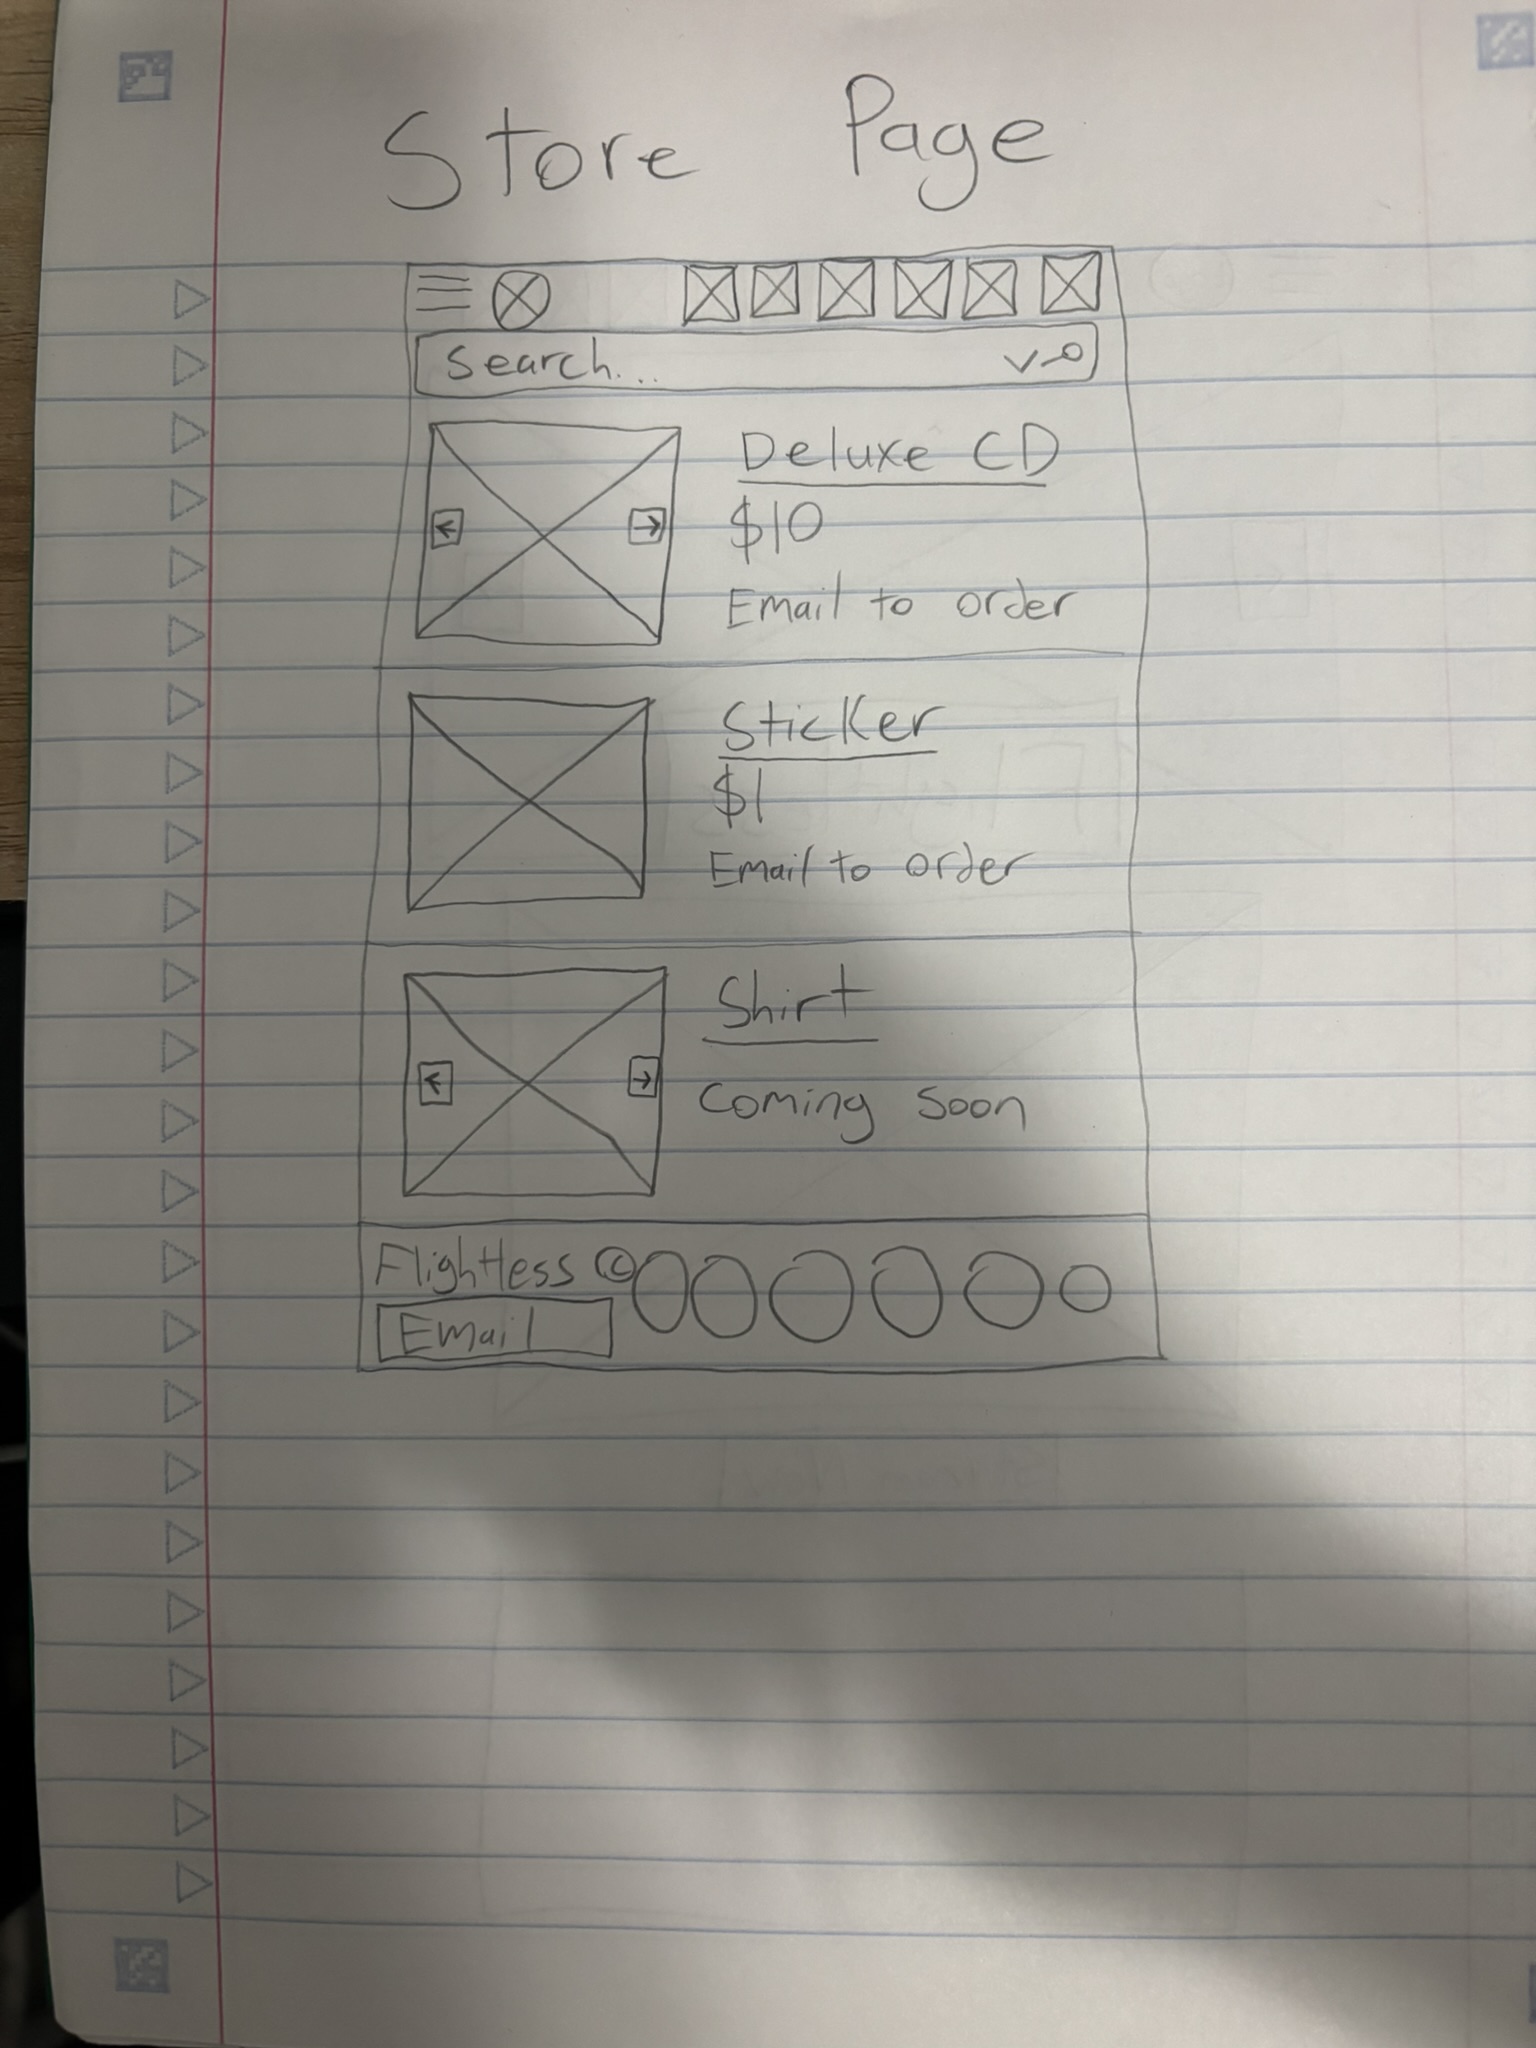 Store Page
Search...
Deluxe CD
$10
Email to order
Sticker
$1
Email to order
Shirt
Coming Soon
Flightless ©
Email